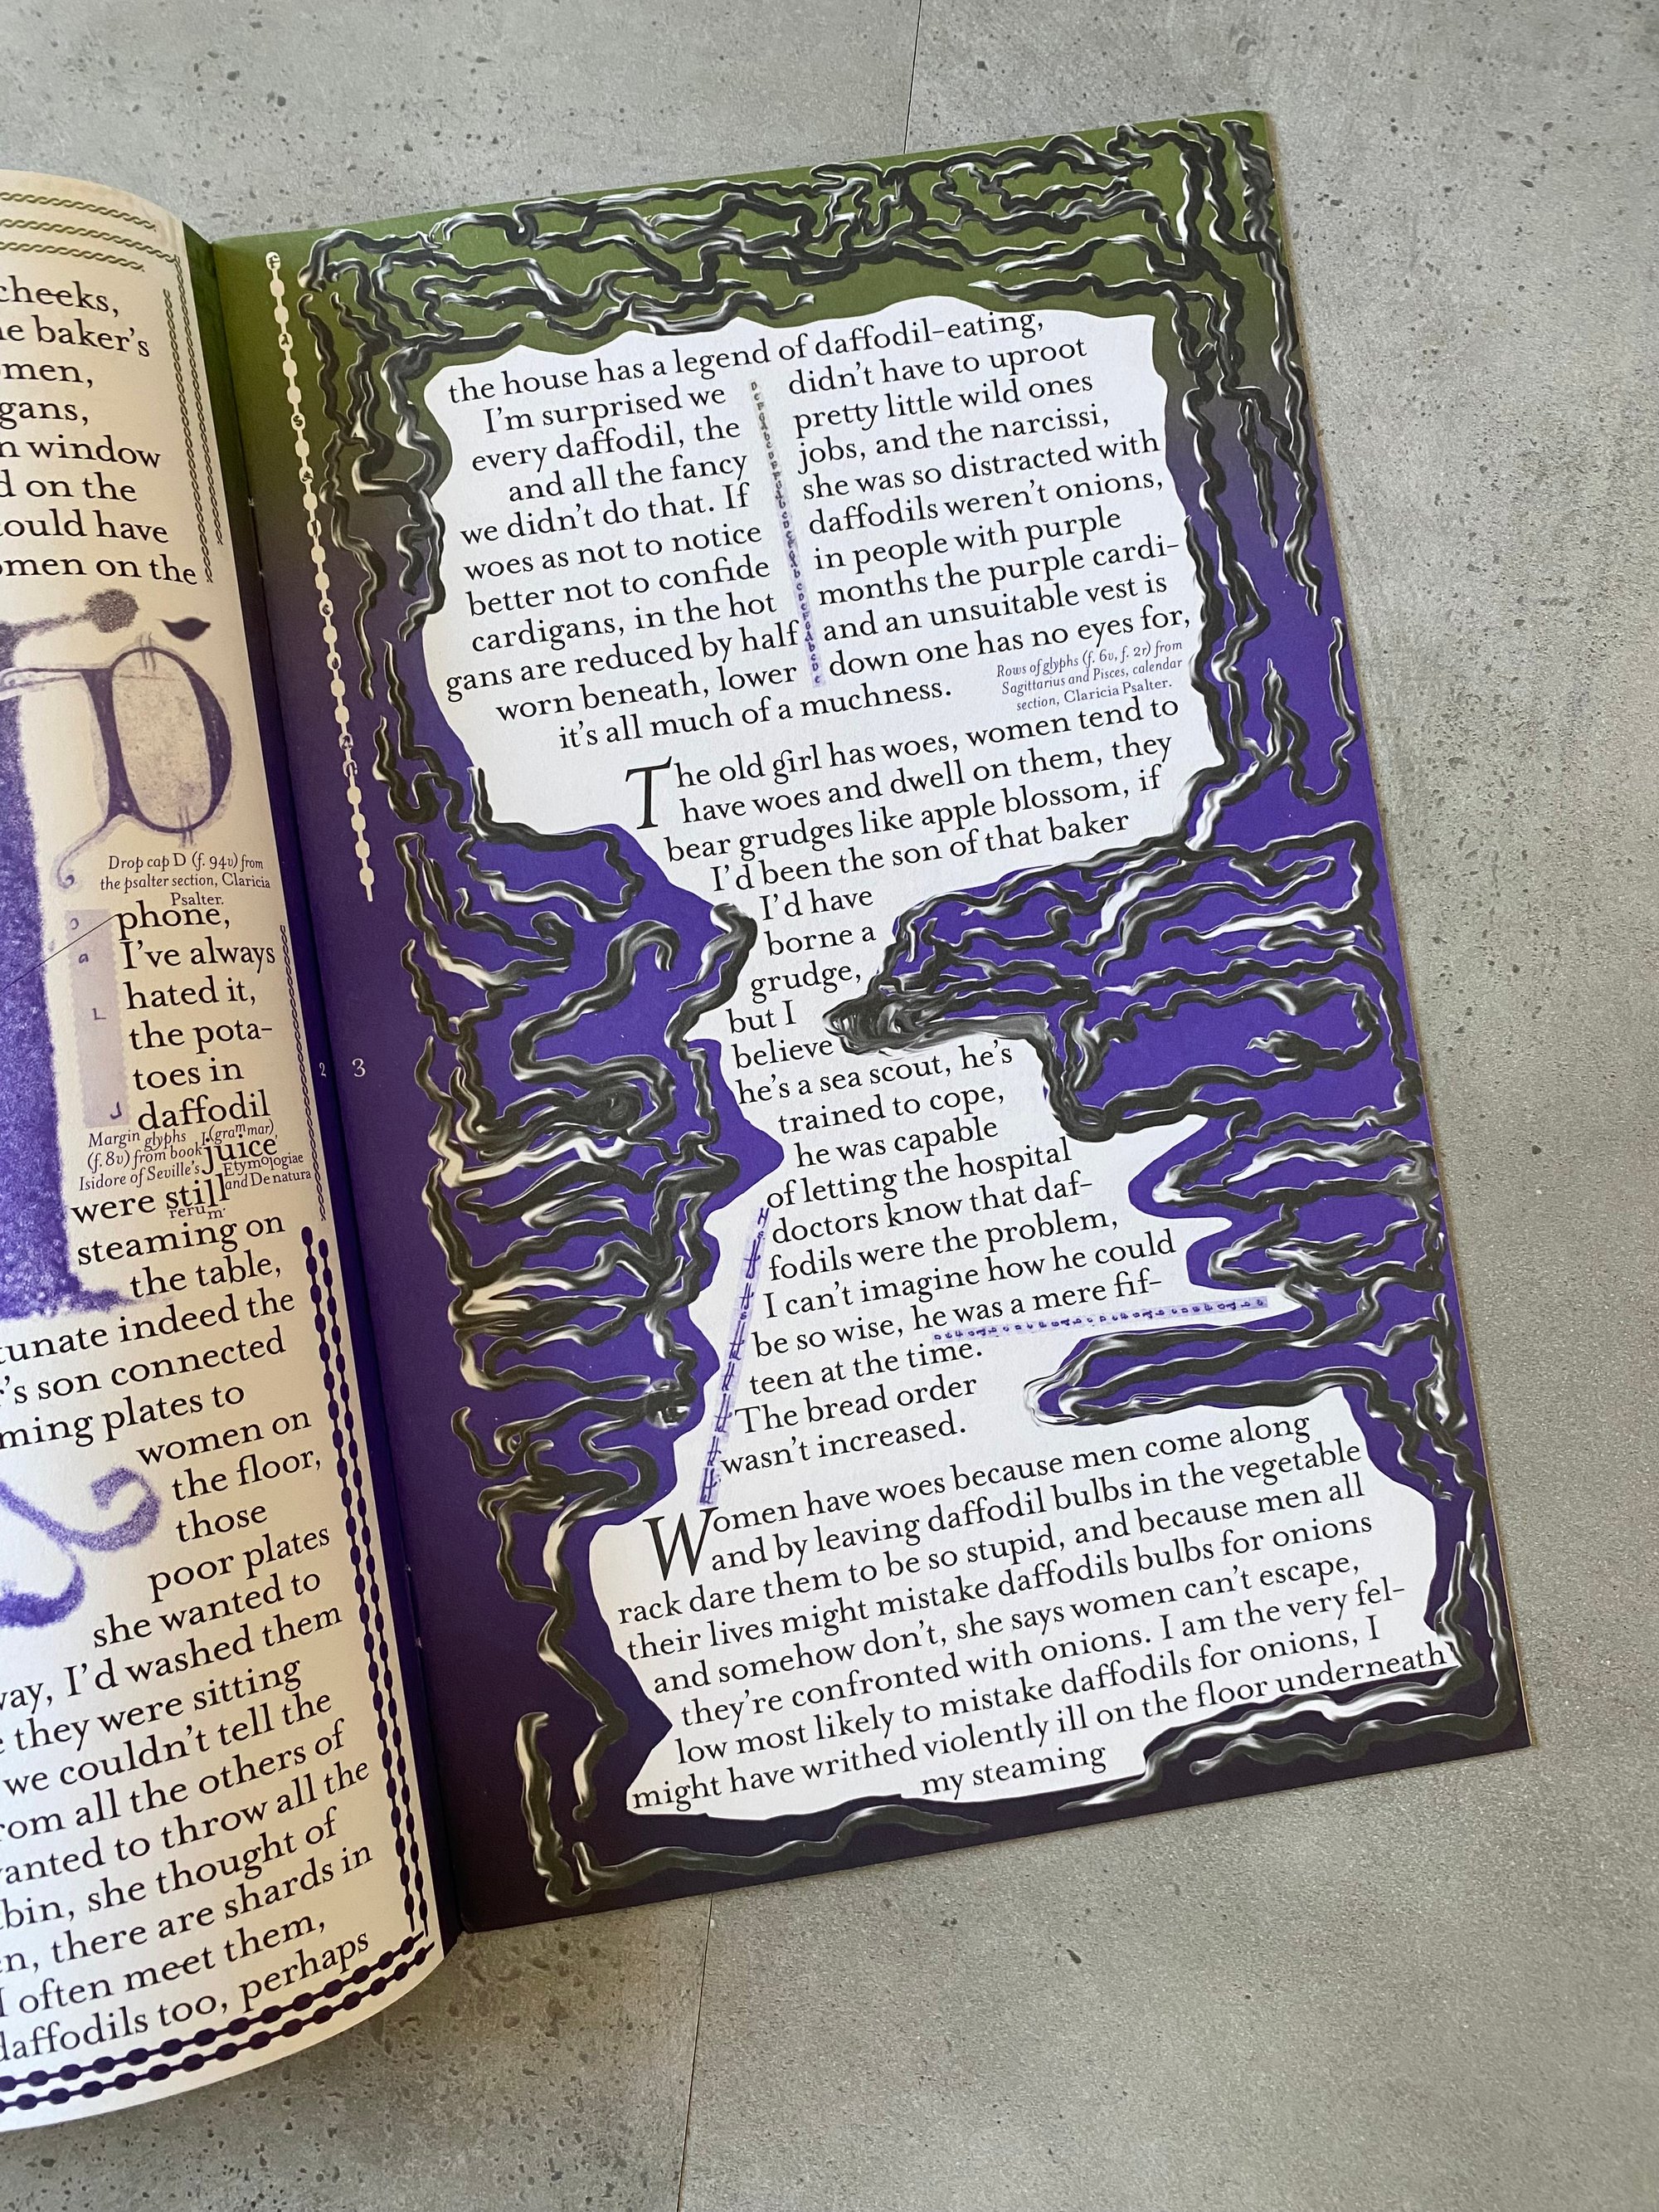 cheeks,
baker's
window
on the
could have
on the
D
Drop cap D (f. 94v) from
the psalter section, Claricia
Psalter.
phone,
I've always
hated it,
the pota-
toes in
daffodil
juice
Margin glyphs
(f. 8v) from book I (grammar),
Isidore of Seville's Etymologiae
and De natura
rerum.
were still
steaming on
the table,
indeed the
son connected
plates to
women on
the floor,
those
poor plates
she wanted to
I'd washed them
they were sitting
we couldn't tell the
all the others of
to throw all the
bin, she thought of
there are shards in
I often meet them,
daffodils too, perhaps
2 3
the house has a legend of daffodil-eating,
I'm surprised we didn't have to uproot
every daffodil, the pretty little wild ones
and all the fancy jobs, and the narcissi,
we didn't do that. If she was so distracted with
woes as not to notice daffodils weren't onions,
better not to confide in people with purple
cardigans, in the hot months the purple cardi-
gans are reduced by half and an unsuitable vest is
worn beneath, lower down one has no eyes for,
it's all much of a muchness.
Rows of glyphs (f. 6v, f. 2r) from
Sagittarius and Pisces, calendar
section, Claricia Psalter.
The old girl has woes, women tend to
have woes and dwell on them, they
bear grudges like apple blossom, if
I'd been the son of that baker
I'd have
borne a
grudge,
but I
believe
he's a sea scout, he's
trained to cope,
he was capable
of letting the hospital
doctors know that daf-
fodils were the problem,
I can't imagine how he could
be so wise, he was a mere fif-
teen at the time.
The bread order
wasn't increased.
Women have woes because men come along
and by leaving daffodil bulbs in the vegetable
rack dare them to be so stupid, and because men all
their lives might mistake daffodils bulbs for onions
and somehow don't, she says women can't escape,
they're confronted with onions. I am the very fel-
low most likely to mistake daffodils for onions, I
might have writhed violently ill on the floor underneath
my steaming